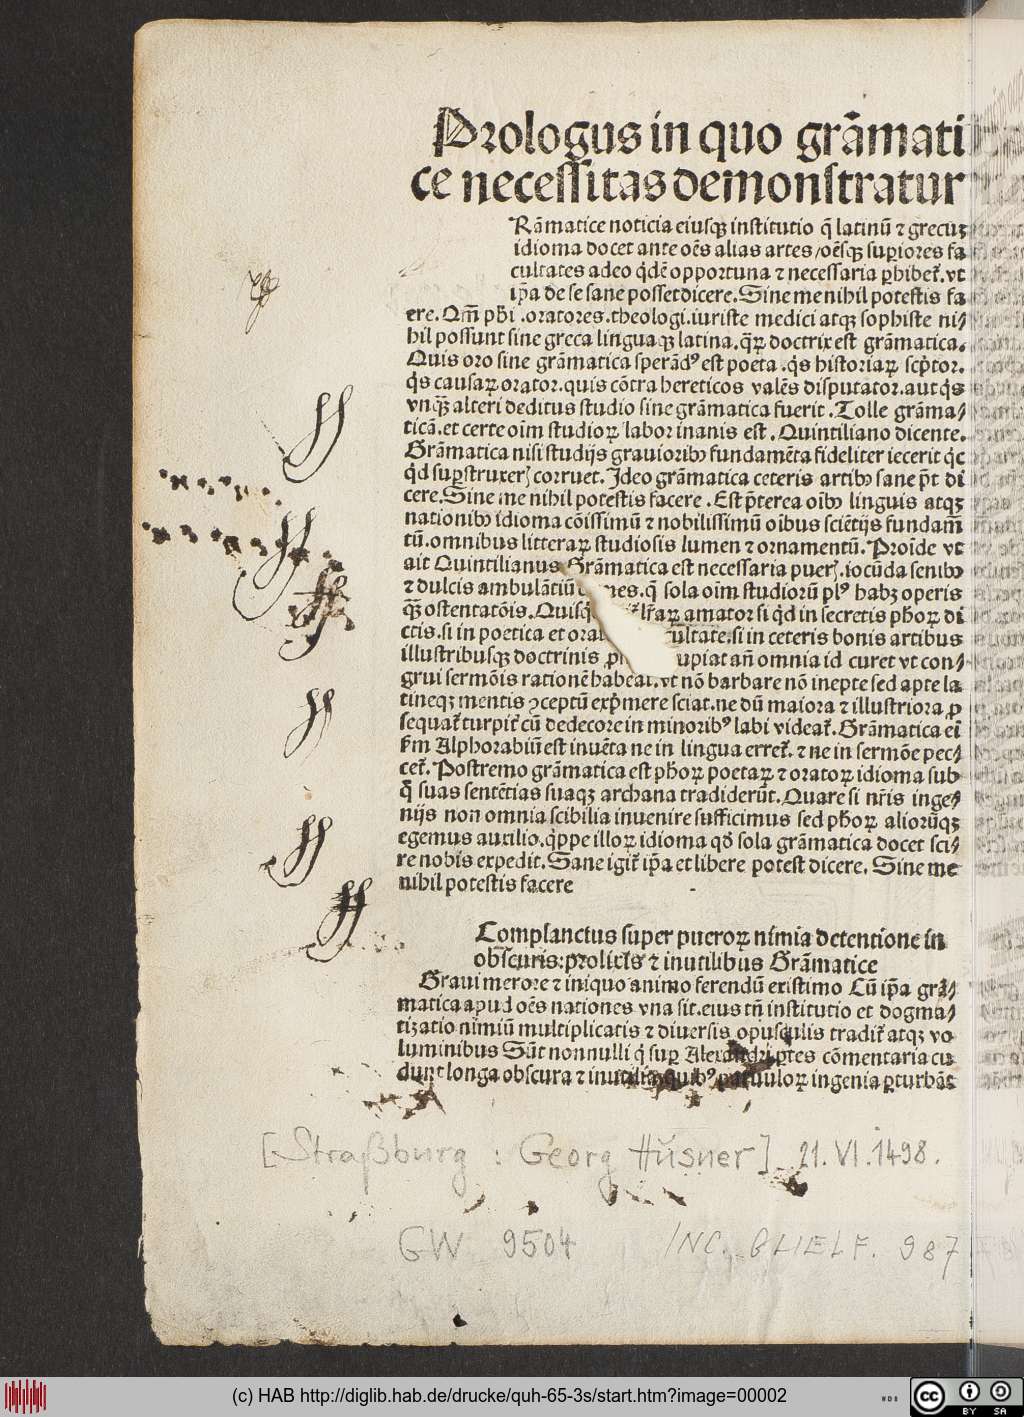 Prologus in quo grãmati
ce necessitas demonstratur
Rãmatice noticia eiusqꝫ institutio q̃ latinũ ⁊ grecuꝫ
idioma docet ante oẽs alias artes / oẽsqꝫ suꝑiores fa
cultates adeo q̇dẽ opportuna ⁊ necessaria ꝑhibet᷑. vt
ip̃a de se sane posset dicere. Sine me nihil potestis fa
ere. Qm̃ pħi .oratores.theologi.iuriste medici atqꝫ sophiste ni⸗
hil possunt sine greca linguaqꝫ latina.q̃ꝝ doctrix est grãmatica.
Quis oro sine grãmatica sperãdꝰ est poeta .q̇s historiaꝝ sc̃ptor.
q̇s causaꝝ orator.quis cõtra hereticos valẽs disputator.aut q̇s
vnq̃ꝫ alteri deditus studio sine grãmatica fuerit . Tolle grãma⸗
ticã.et certe oĩm studioꝝ labor inanis est . Quintiliano dicente.
Grãmatica nisi studijs grauioribꝰ fundamẽta fideliter iecerit q̇c
q̇d suꝑstruxerꝭ corruet. Ideo grãmatica ceteris artibꝰ sane p̃t di
cere.Sine me nihil potestis facere . Est p̃terea oĩbꝰ linguis atqꝫ
nationibꝰ idioma cõissimũ ⁊ nobilissimũ oĩbus sciẽtijs fundam̃
tũ.omnibus litteraꝝ studiosis lumen ⁊ ornamentũ. Proĩde vt
ait Quintilianus Grãmatica est necessaria puerꝭ.iocũda senibꝰ
⁊ dulcis ambulãtiũ mes.q̃ sola oĩm studiorũ plꝰ habꝫ operis
q̃ꝫ ostentatõis. l̃raꝝ amator si q̇d in secretis pħoꝝ di
ctis.si in poetica et ultate.si in ceteris bonis artibus
illustribusqꝫ doctrinis upiat añ omnia id curet vt con⸗
grui sermõis rationẽ habeat.vt nõ barbare nõ inepte sed apte la
tineqꝫ mentis ꝯceptũ exp̃mere sciat.ne dũ maiora ⁊ illustriora ꝓ
sequat᷑ turpit᷑ cũ dedecore in minoribꝰ labi videat᷑. Grãmatica ei
k̃m Alphorabiũ est inuẽta ne in lingua erret᷑. ⁊ ne in sermõe pec⸗
cet᷑. Postremo grãmatica est pħoꝝ poetaꝝ ⁊ oratoꝝ idioma sub
q̃ suas sentẽtias suaqꝫ archana tradiderũt. Quare si nr̃is inge⸗
nijs non omnia scibilia inuenire sufficimus sed pħoꝝ aliorũqꝫ
egemus auxilio.q̇ppe illoꝝ idioma qđ sola grãmatica docet sci⸗
re nobis expedit. Sane igit᷑ ip̃a et libere potest dicere. Sine me
nihil potestis facere
Complanctus super pueroꝝ nimia detentione in
obscuris: prolixis ⁊ inutilibus Grãmatice
Graui merore ⁊ iniquo animo ferendũ existimo Cũ ip̃a grã⸗
matica apud oẽs nationes vna sit.eius tñ institutio et dogma⸗
tizatio nimiũ multiplicatis ⁊ diuersis opusculis tradit᷑ atqꝫ vo
luminibus Sũt nonnulli q̇ suꝑ Alexandri ꝑtes cõmentaria cu
dunt longa obscura ⁊ inutilia quibꝰ paruuloꝝ ingenia ꝑturbãt
[Straßburg : Georg Husner] 21. VI. 1498.
GW 9504 INC. GUELF. 987
(c) HAB http://diglib.hab.de/drucke/quh-65-3s/start.htm?image=00002
WDB
cc BY SA